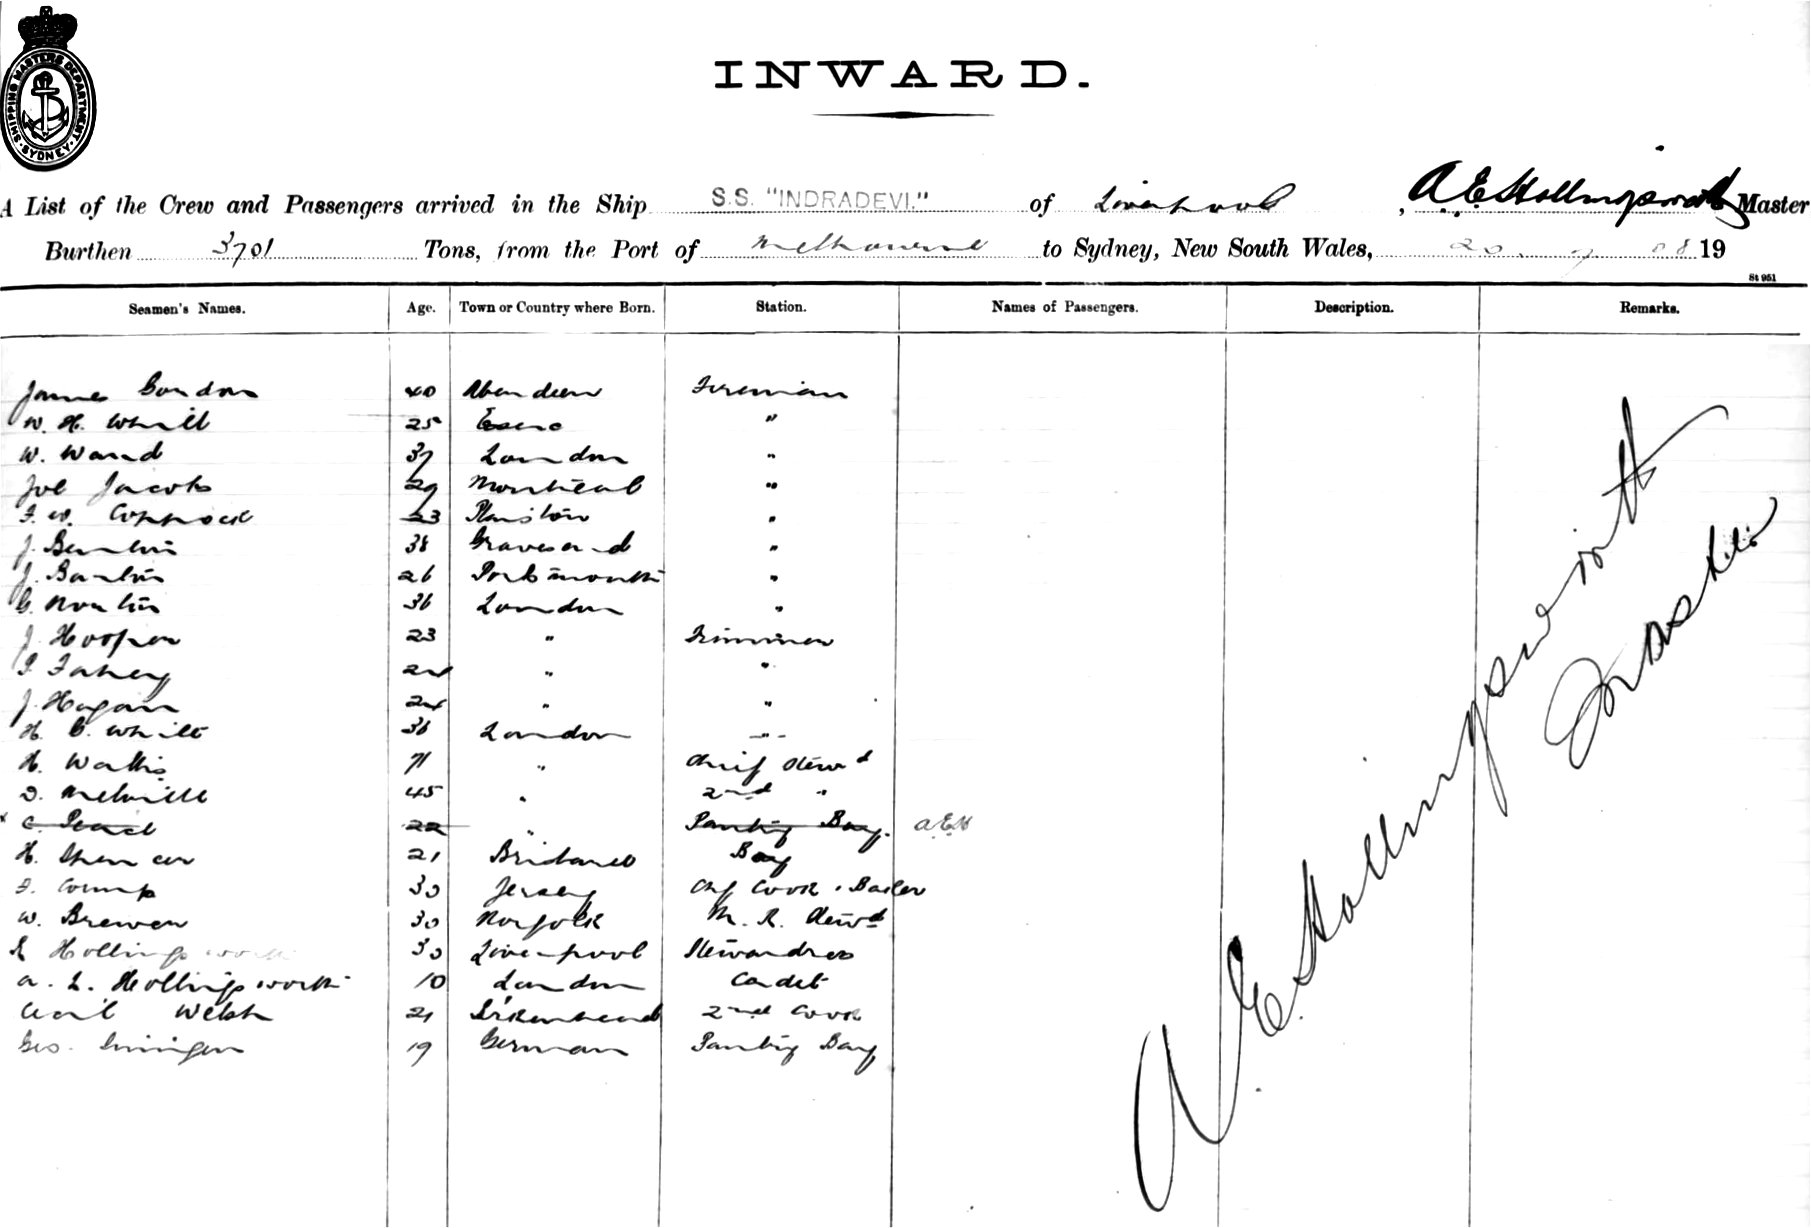 SHIPPING MASTERS DEPARTMENT. SYDNEY.
INWARD.
A List of the Crew and Passengers arrived in the Ship S.S. "INDRADEVI." of Liverpool, A. E. Hollingsworth Master
Burthen 3701 Tons, from the Port of Melbourne to Sydney, New South Wales, 20. 7 08 19
St 951
Seamen's Names. Age. Town or Country where Born. Station. Names of Passengers. Description. Remarks.
James Gordon 40 Aberdeen Fireman
W. H. White 25 Essex "
W. Ward 37 London "
Joe Jacobs 29 Montreal "
F. W. Coppock 23 Plaistow "
J. 38 Gravesend "
J. 26 Portsmouth "
36 London "
J. Hooper 23 " Trimmer
Fahey 24 " "
J. Hogan 24 " "
H. G. White 36 London "
H. Wallis 71 " Chief Stewd
D. Melville 45 " 2nd "
x C. Pearl 22 " Pantry Boy. A.E.H
H. Spencer 21 Brisbane Boy
F. 30 Jersey Chf Cook & Baker
W. Brewer 30 Norfolk M. R. Stewd
Hollingsworth 30 Liverpool Stewardess
A. L. Hollingsworth 10 London Cadet
Cecil Welsh 21 Birkenhead 2nd Cook
Geo. 19 German Pantry Boy
A. E. Hollingsworth
Master